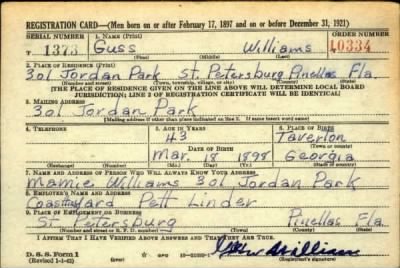 REGISTRATION CARD—(Men born on or after February 17, 1897 and on or before December 31, 1921)
SERIAL NUMBER 1. NAME (Print) ORDER NUMBER
T 1373 Guss Williams 10334
(First) (Middle) (Last)
2. PLACE OF RESIDENCE (Print)
301 Jordan Park St. Petersburg Pinellas Fla.
(Number and street) (Town, township, village, or city) (County) (State)
[THE PLACE OF RESIDENCE GIVEN ON THE LINE ABOVE WILL DETERMINE LOCAL BOARD
JURISDICTION; LINE 2 OF REGISTRATION CERTIFICATE WILL BE IDENTICAL]
3. MAILING ADDRESS
301 Jordan Park
[Mailing address if other than place indicated on line 2. If same insert word same]
4. TELEPHONE 5. AGE IN YEARS 6. PLACE OF BIRTH
43 Taverlon
DATE OF BIRTH (Town or county)
Mar. 18 1898 Georgia
(Exchange) (Number) (Mo.) (Day) (Yr.) (State or country)
7. NAME AND ADDRESS OF PERSON WHO WILL ALWAYS KNOW YOUR ADDRESS
Mamie Williams 301 Jordan Park
8. EMPLOYER'S NAME AND ADDRESS
Pett Linder
9. PLACE OF EMPLOYMENT OR BUSINESS
St. Petersburg Pinellas Fla.
(Number and street or R. F. D. number) (Town) (County) (State)
I AFFIRM THAT I HAVE VERIFIED ABOVE ANSWERS AND THAT THEY ARE TRUE.
D. S. S. Form 1
(Revised 1-1-42) (over)